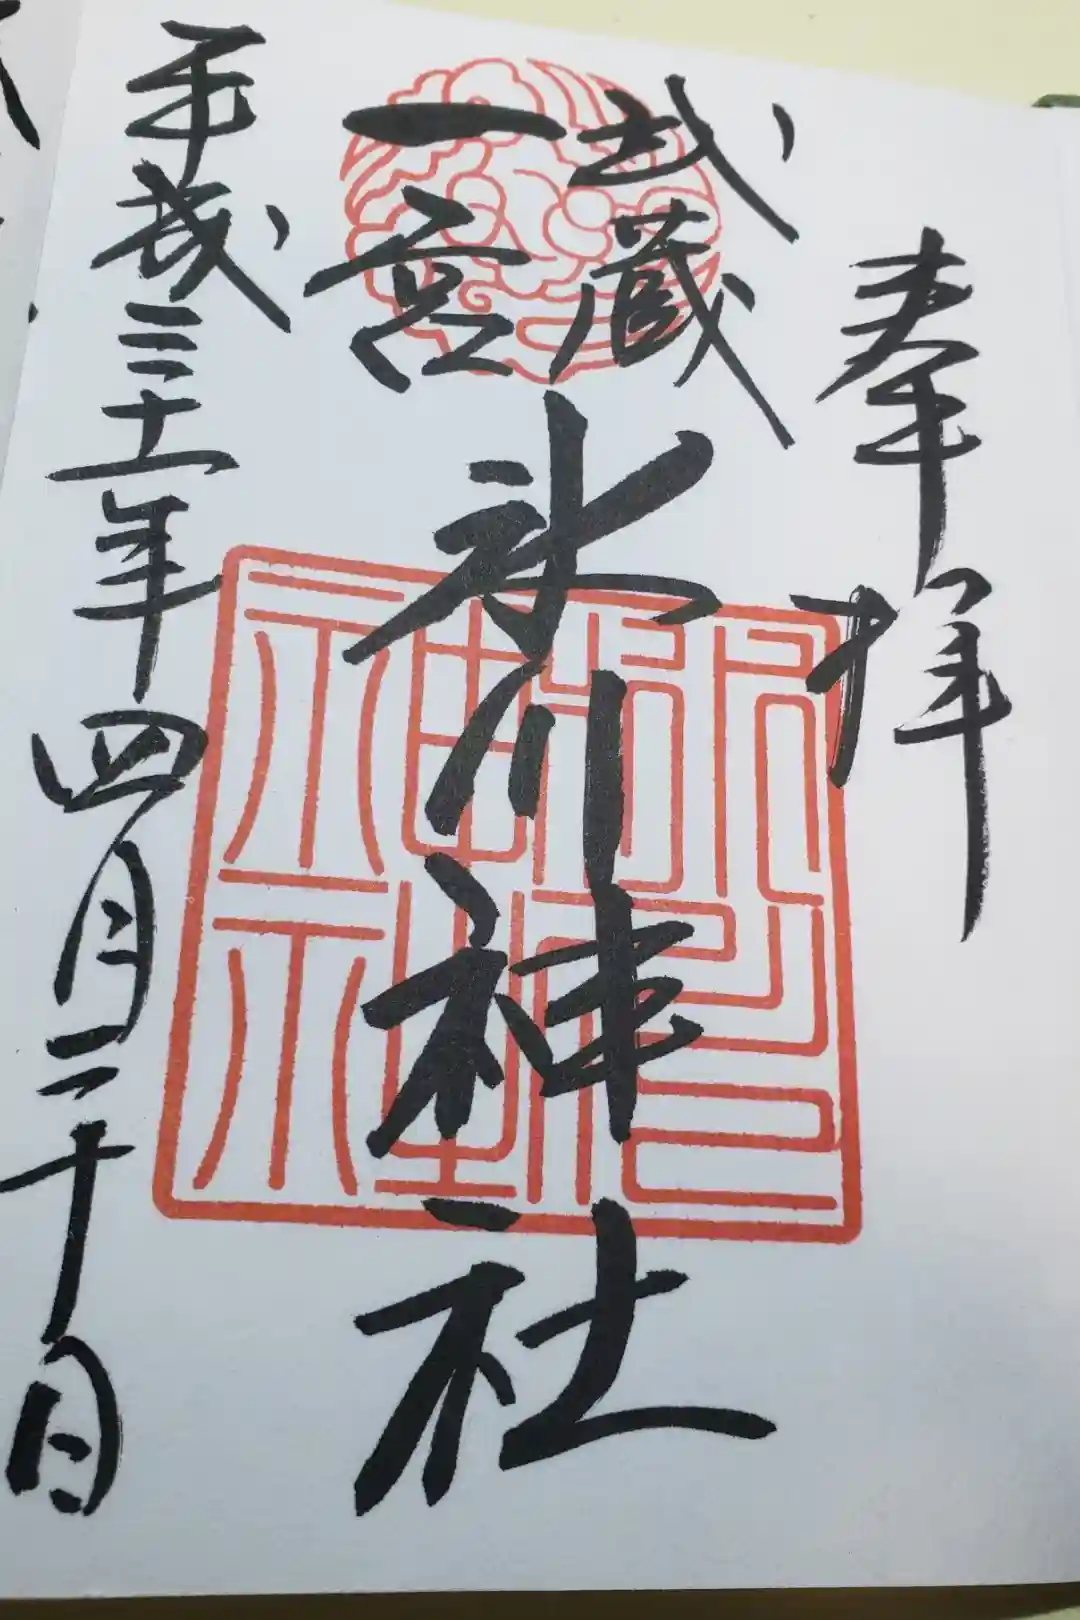 奉拝
武蔵
一宮
氷川神社
平成三十一年四月二十日